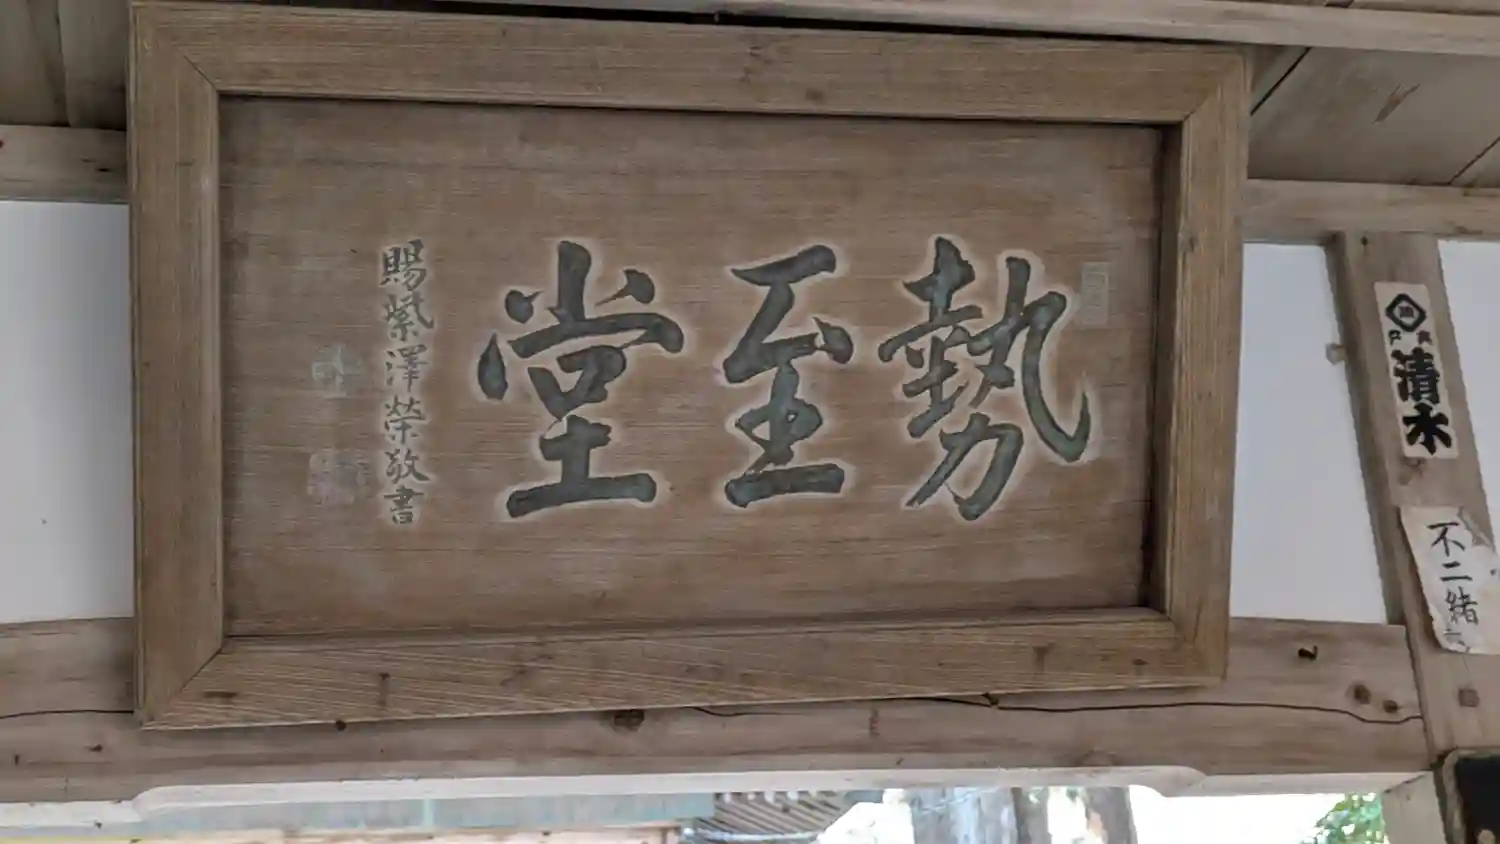 勢至堂
賜紫澤榮敬書
清水
不二緒